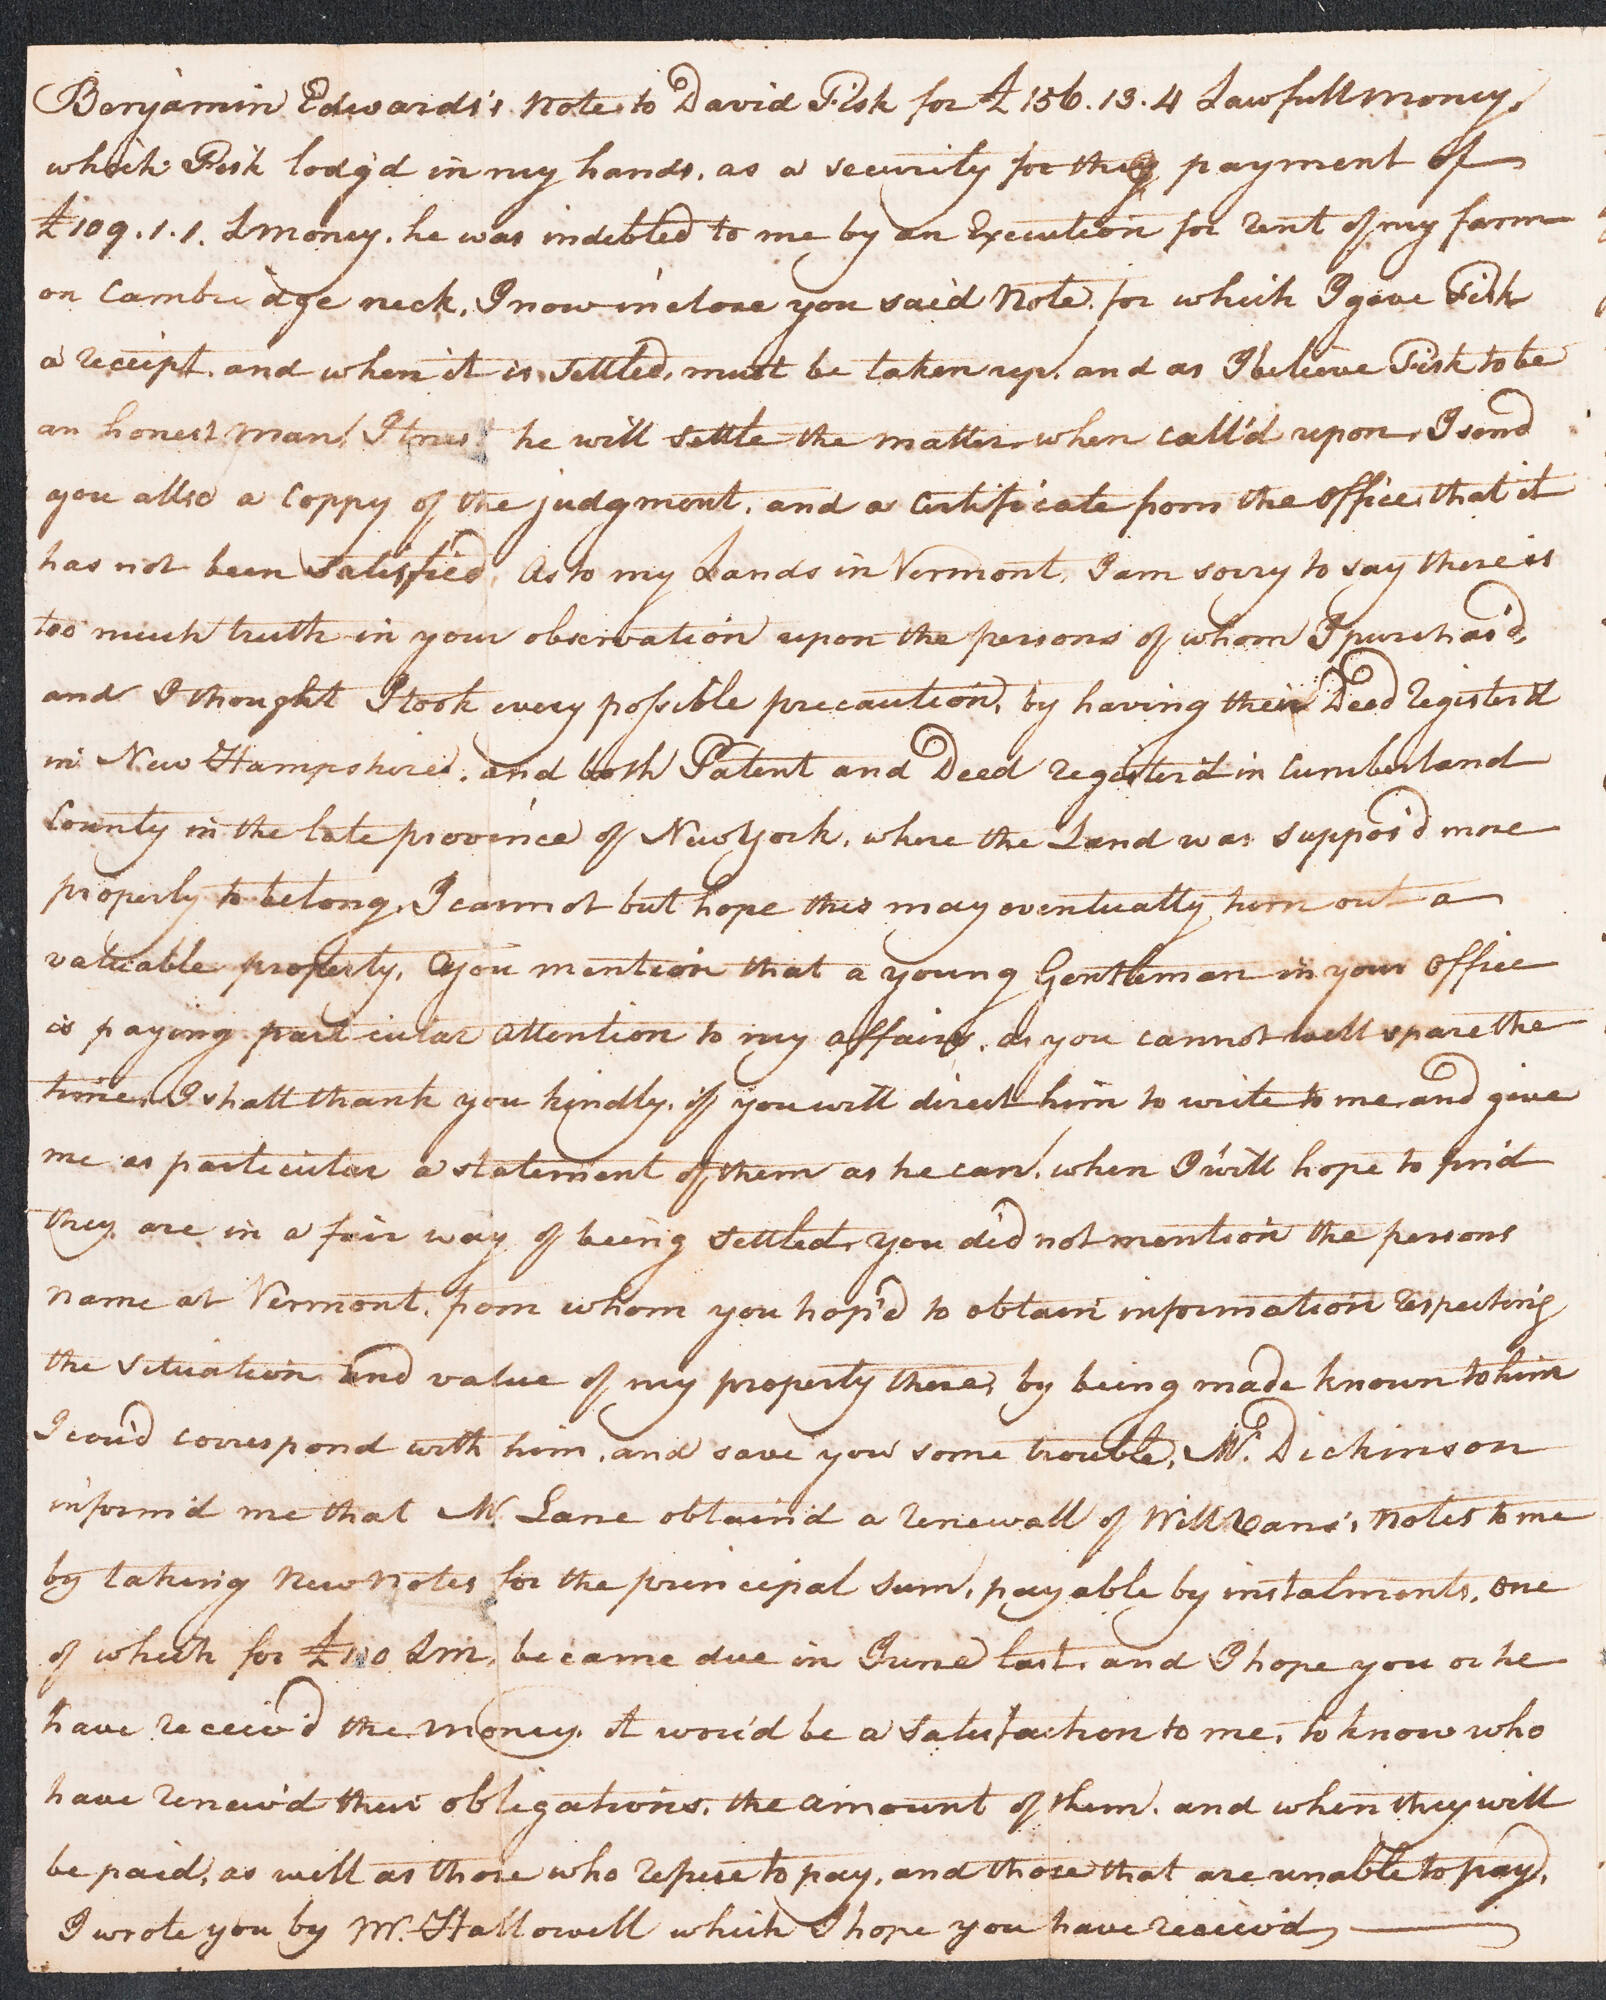 Benjamin Edwards's note to David Fisk for £156.13.4 Lawfull money,
which Fisk lodg'd in my hands, as a security for the payment of
£109.1.1. L money, he was indebted to me by an Execution for rent of my farm
on Cambridge neck, I now inclose you said Note, for which I gave Fisk
a receipt, and when it is settled, must be taken up, and as I believe Fisk to be
an honest man, I trust he will settle the matter when call'd upon, I send
you allso a Coppy of the judgment, and a Certificate from the office that it
has not been satisfied, As to my Lands in Vermont, I am sorry to say there is
too much truth in your observation upon the persons of whom I purchas'd,
and I thought I took every possible precaution, by having their Deed register'd
in New Hampshire, and both Patent and Deed register'd in Cumberland
County in the late province of New York, where the Land was suppos'd more
properly to belong, I cannot but hope this may eventually turn out a
valuable property, You mention that a young Gentleman in your office
is paying particular attention to my affairs, as you cannot well spare the
time, I shall thank you kindly, if you will direct him to write to me and give
me as particular a statement of them as he can, when I will hope to find
they are in a fair way of being settled, you did not mention the persons
name at Vermont, from whom you hop'd to obtain information respecting
the situation and value of my property there, by being made known to him
I cou'd correspond with him, and save you some trouble, Mr. Dickinson
inform'd me that Mr. Lane obtain'd a renewall of Will Vans's notes to me
by taking New notes for the principal sum, payable by instalments, one
of which for £110 Lm, became due in June last, and I hope you or he
have receiv'd the money, it wou'd be a satisfaction to me, to know who
have renew'd their obligations, the amount of them, and when they will
be paid, as well as those who refuse to pay, and those that are unable to pay,
I wrote you by Mr. Hallowell which I hope you have receiv'd,